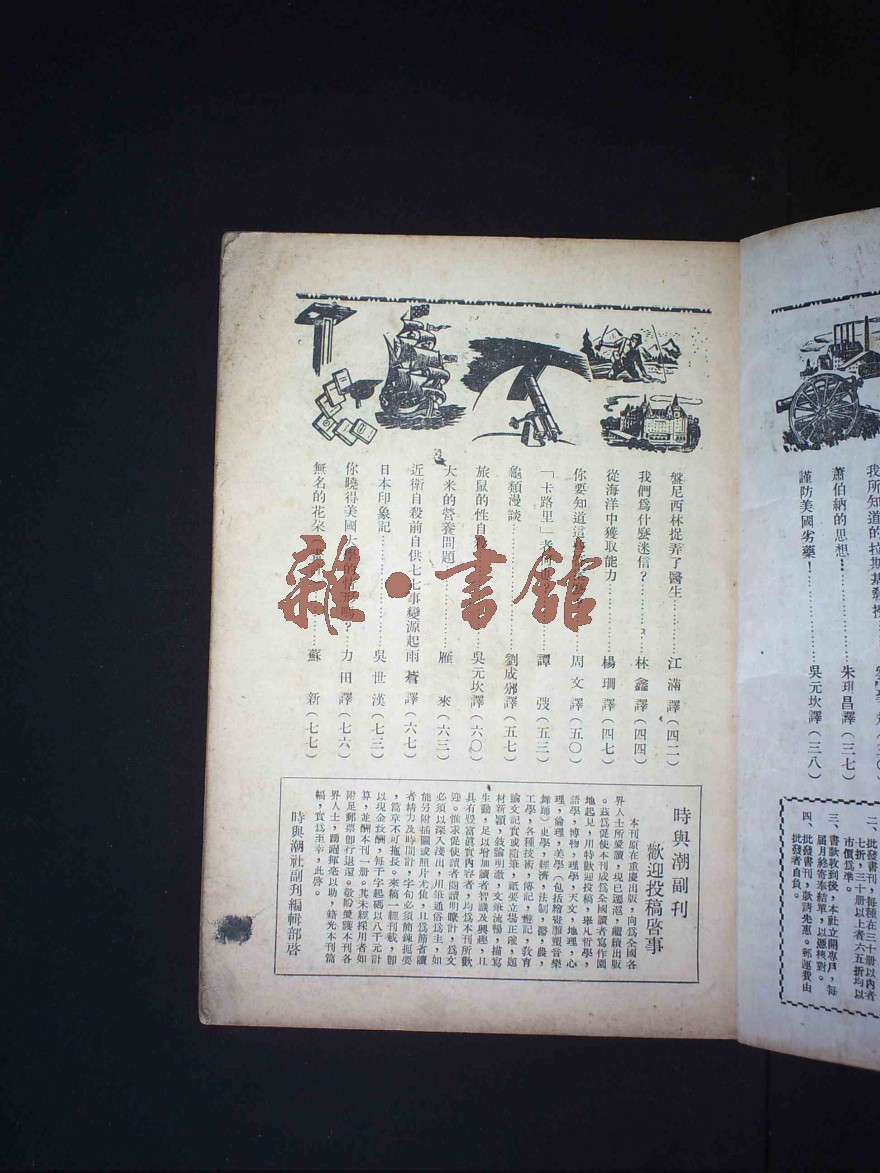 我所知道的拉斯基教授
蕭伯納的思想…朱玥昌譯(三七)
謹防美國劣藥!…吳元坎譯(三八)
二、批發書刊,每種在三十册以內者
七折,三十册以上者六五折均以
市價爲準。
三、書款收到後,本社立開專戶,每
屆月終寄奉結單,以憑核對。
四、批發書刊,款請先惠。郵運費由
批發者自負。
盤尼西林捉弄了醫生…江滿譯(四二)
我們爲什麼迷信?…林鑫譯(四四)
從海洋中獲取能力…楊珊譯(四七)
你要知道這…周文譯(五〇)
「卡路里」…譚弢(五三)
龜類漫談…劉成邠譯(五七)
旅鼠的性自…吳元坎譯(六〇)
大米的營養問題…雁來(六三)
近衛自殺前自供七七事變源起雨蒼譯(六七)
日本印象記…吳世漢(七三)
你曉得美國大學的情形嗎?…力田譯(七六)
無名的花朵…蘇新(七七)
時與潮副刊
歡迎投稿啓事
本刊原在重慶出版,向爲全國各
界人士所愛讀,現已遷滬,繼續出版
。茲爲促使本刊成爲全國讀者寫作園
地起見,用特歡迎投稿,舉凡哲學,
語學,博物,理學,天文,地理,心
理,倫理,美學(包括繪畫雕塑音樂
舞踊)史學,經濟,法制,醫,農,
工學,各種技術,傳記,遊記,敎育
論文記實或隨筆,祇要立場正確,題
材新穎,敍論明澈,文筆流暢,描寫
生動,足以增加讀者智識及興趣,且
具有豐富眞實內容者,均爲本刊所歡
迎。惟求促使讀者閱讀明瞭計,爲文
必須以深入淺出,用筆通俗爲主,如
能另附插圖或照片尤佳,且爲節省讀
者精力及時間計,字句必須簡鍊扼要
,篇章不可拖長。來稿一經刊載,卽
以現金致酬,每千字起碼以八千元計
算,並酬本刊一册。其未經採用者如
附足郵票卽行退還。敬盼愛護本刊各
界人士,踴躍揮毫以助,藉光本刊篇
幅,實爲至幸,此啓。
時與潮社副刊編輯部啓
雜·書館